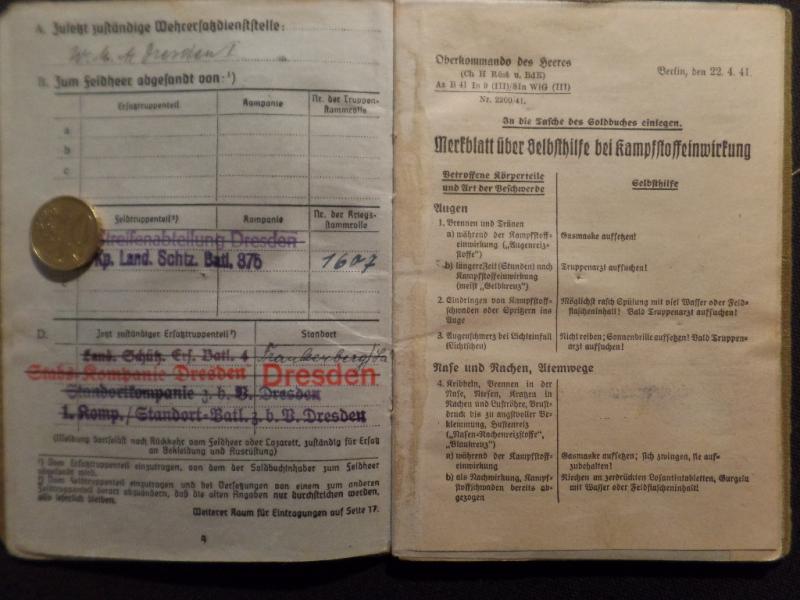 A. Zuletzt zuständige Wehrersatzdienststelle:
W. M. A. Dresden I
B. Zum Feldheer abgesandt von:¹)
Ersatztruppenteil
Kompanie
Nr. der Truppen-
stammrolle
a
b
c
Feldtruppenteil²)
Kompanie
Nr. der Kriegs-
stammrolle
Streifenabteilung Dresden
Kp. Land. Schtz. Batl. 375
1607
D.
Jetzt zuständiger Ersatztruppenteil²)
Standort
Land. Schütz. Ers. Batl. 4
Frankenberg/Sa
Stabs-Kompanie Dresden
Dresden
Standortkompanie z. b. V. Dresden
1. Komp./Standort-Batl. z. b. V. Dresden
(Meldung dortselbst nach Rückkehr vom Feldheer oder Lazarett, zuständig für Ersatz
an Bekleidung und Ausrüstung)
¹) Vom Ersatztruppenteil einzutragen, von dem der Soldbuchinhaber zum Feldheer
abgesandt wird.
²) Vom Feldtruppenteil einzutragen und bei Versetzungen von einem zum anderen
Feldtruppenteil derart abzuändern, daß die alten Angaben nur durchstrichen werden,
also leserlich bleiben.
Weiterer Raum für Eintragungen auf Seite 17.
4
Oberkommando des Heeres
(Ch H Rüst u. BdE)
Az B 41 In 9 (III)/SIn WiG (III)
Nr. 2200/41.
Berlin, den 22. 4. 41.
In die Tasche des Soldbuches einlegen.
Merkblatt über Selbsthilfe bei Kampfstoffeinwirkung
Betroffene Körperteile
und Art der Beschwerde
Selbsthilfe
Augen
1. Brennen und Tränen
a) während der Kampfstoff-
einwirkung („Augenreiz-
stoffe")
Gasmaske aufsetzen!
b) längere Zeit (Stunden) nach
Kampfstoffeinwirkung
(meist „Gelbkreuz")
Truppenarzt aufsuchen!
2. Eindringen von Kampfstoff-
schwaden oder Spritzern ins
Auge
Möglichst rasch Spülung mit viel Wasser oder Feld-
flascheninhalt! Bald Truppenarzt aufsuchen!
3. Augenschmerz bei Lichteinfall
(Lichtscheu)
Nicht reiben; Sonnenbrille aufsetzen! Bald Truppen-
arzt aufsuchen!
Nase und Rachen, Atemwege
4. Kribbeln, Brennen in der
Nase, Niesen, Kratzen in
Rachen und Luftröhre, Brust-
druck bis zu angstvoller Be-
klemmung, Hustenreiz
(„Nasen-Rachenreizstoffe",
„Blaukreuz")
a) während der Kampfstoff-
einwirkung
Gasmaske aufsetzen; sich zwingen, sie auf-
zubehalten!
b) als Nachwirkung, Kampf-
stoffschwaden bereits ab-
gezogen
Riechen an zerdrückten Losantintabletten, Gurgeln
mit Wasser oder Feldflascheninhalt!